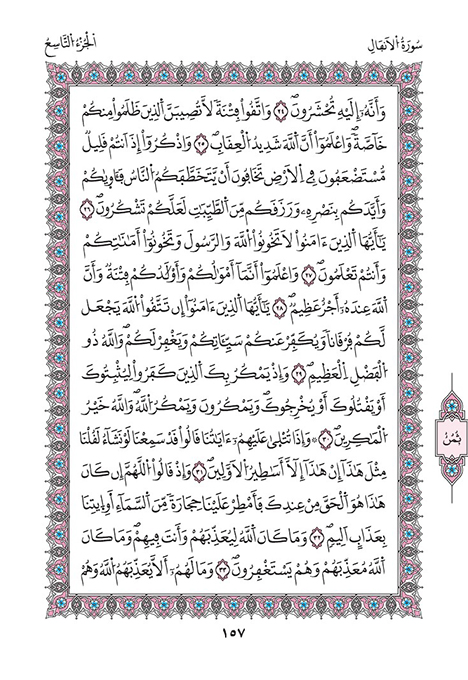 سُورَةُ الْأَنفَالِ
الْجُزْءُ التَّاسِعُ
وَأَنَّهُۥٓ إِلَيْهِ تُحْشَرُونَ ۝٢٤ وَاتَّقُوا۟ فِتْنَةً لَّا تُصِيبَنَّ الَّذِينَ ظَلَمُوا۟ مِنكُمْ
خَآصَّةً وَاعْلَمُوٓا۟ أَنَّ اللَّهَ شَدِيدُ الْعِقَابِ ۝٢٥ وَاذْكُرُوٓا۟ إِذْ أَنتُمْ قَلِيلٌ
مُّسْتَضْعَفُونَ فِي الْأَرْضِ تَخَافُونَ أَنْ يَّتَخَطَّفَكُمُ النَّاسُ فَـَٔاوٜىٰكُمْ
وَأَيَّدَكُم بِنَصْرِهِۦ وَرَزَقَكُم مِّنَ الطَّيِّبَٰتِ لَعَلَّكُمْ تَشْكُرُونَ ۝٢٦
يَٰٓأَيُّهَا الَّذِينَ ءَامَنُوا۟ لَا تَخُونُوا۟ اللَّهَ وَالرَّسُولَ وَتَخُونُوٓا۟ أَمَٰنَٰتِكُمْ
وَأَنتُمْ تَعْلَمُونَ ۝٢٧ وَاعْلَمُوٓا۟ أَنَّمَآ أَمْوَٰلُكُمْ وَأَوْلَٰدُكُمْ فِتْنَةٌ وَأَنَّ
اللَّهَ عِندَهُۥٓ أَجْرٌ عَظِيمٌ ۝٢٨ يَٰٓأَيُّهَا الَّذِينَ ءَامَنُوٓا۟ إِن تَتَّقُوا۟ اللَّهَ يَجْعَل
لَّكُمْ فُرْقَانًا وَيُكَفِّرْ عَنكُمْ سَيِّـَٔاتِكُمْ وَيَغْفِرْ لَكُمْ وَاللَّهُ ذُو
الْفَضْلِ الْعَظِيمِ ۝٢٩ وَإِذْ يَمْكُرُ بِكَ الَّذِينَ كَفَرُوا۟ لِيُثْبِتُوكَ
أَوْ يَقْتُلُوكَ أَوْ يُخْرِجُوكَ وَيَمْكُرُونَ وَيَمْكُرُ اللَّهُ وَاللَّهُ خَيْرُ
الْمَٰكِرِينَ ۝٣٠ ۞ وَإِذَا تُتْلَىٰ عَلَيْهِمُۥٓ ءَايَٰتُنَا قَالُوا۟ قَدْ سَمِعْنَا لَوْ نَشَآءُ لَقُلْنَا
مِثْلَ هَٰذَآ إِنْ هَٰذَآ إِلَّآ أَسَٰطِيرُ الْأَوَّلِينَ ۝٣١ وَإِذْ قَالُوا۟ اللَّهُمَّ إِن كَانَ
هَٰذَا هُوَ الْحَقَّ مِنْ عِندِكَ فَأَمْطِرْ عَلَيْنَا حِجَارَةً مِّنَ السَّمَآءِ أَوِ ائْتِنَا
بِعَذَابٍ أَلِيمٍ ۝٣٢ وَمَا كَانَ اللَّهُ لِيُعَذِّبَهُمْ وَأَنتَ فِيهِمْ وَمَا كَانَ
اللَّهُ مُعَذِّبَهُمْ وَهُمْ يَسْتَغْفِرُونَ ۝٣٣ وَمَا لَهُمُۥٓ أَلَّا يُعَذِّبَهُمُ اللَّهُ وَهُمْ
ثُمُنٌ
١٥٧